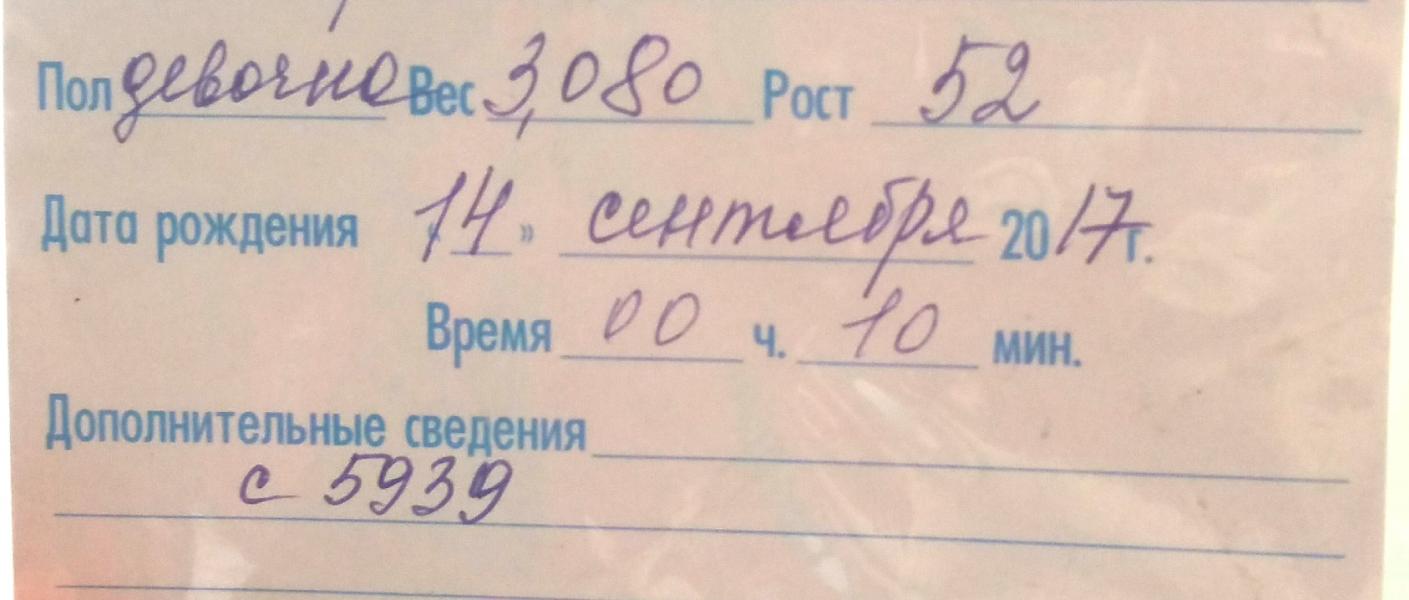 Пол девочка Вес 3,080 Рост 52
Дата рождения «14» сентября 2017г.
Время 00 ч. 10 мин.
Дополнительные сведения
с 5939